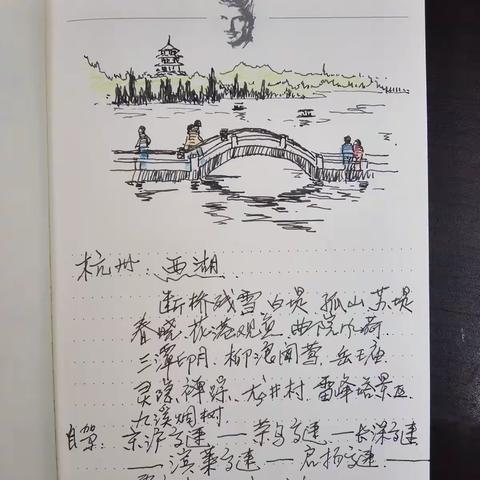 杭州：西湖
断桥残雪 白堤 孤山 苏堤
春晓、花港观鱼、曲院风荷、
三潭印月、柳浪闻莺、岳王庙
灵隐禅踪、龙井村、雷峰塔景区、
九溪烟树.
自驾：京沪高速——荣乌高速——长深高速
——滨莱高速——启扬高速——